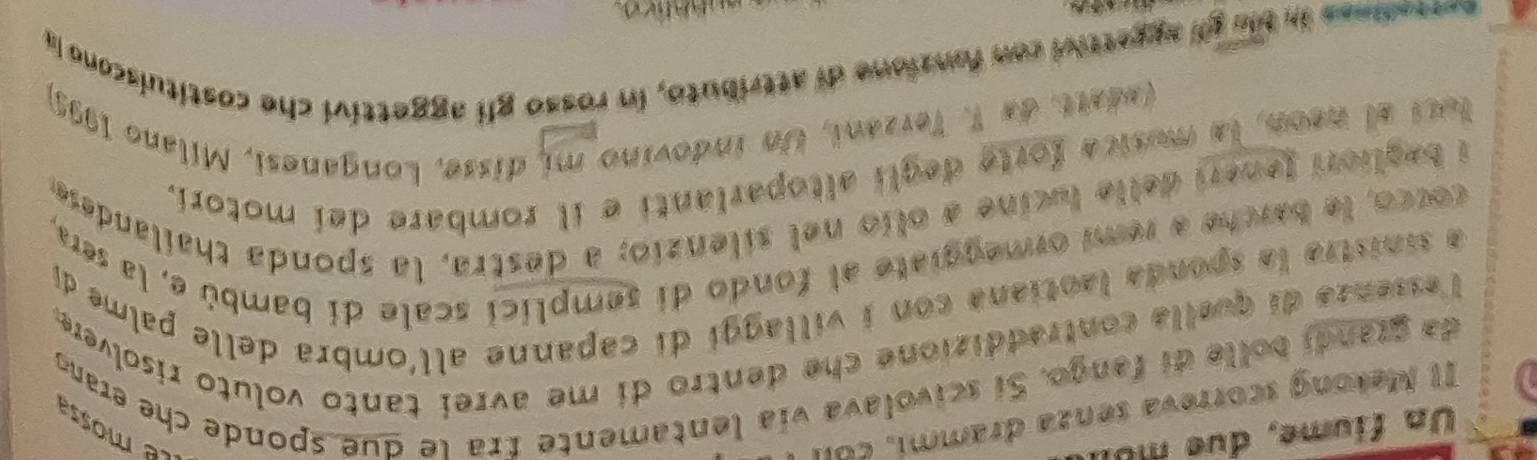 Un fiume, due
Il Mekong scorreva senza drammi, con mossa
da grandi bolle di fango. Si scivolava via lentamente fra le due sponde che erano
l'essenza di quella contraddizione che dentro di me avrei tanto voluto risolvere:
a sinistra la sponda laotiana con i villaggi di capanne all'ombra delle palme di
cocco, le barche a remi ormeggiate al fondo di semplici scale di bambù e, la sera,
i bagliori teneri delle lucine a olio nel silenzio; a destra, la sponda thailandese
luci al neon, la musica forte degli altoparlanti e il rombare dei motori.
(adatt. da T. Terzani, Un indovino mi disse, Longanesi, Milano 1995)
in blu gli aggettivi con funzione di attributo, in rosso gli aggettivi che costituiscono la